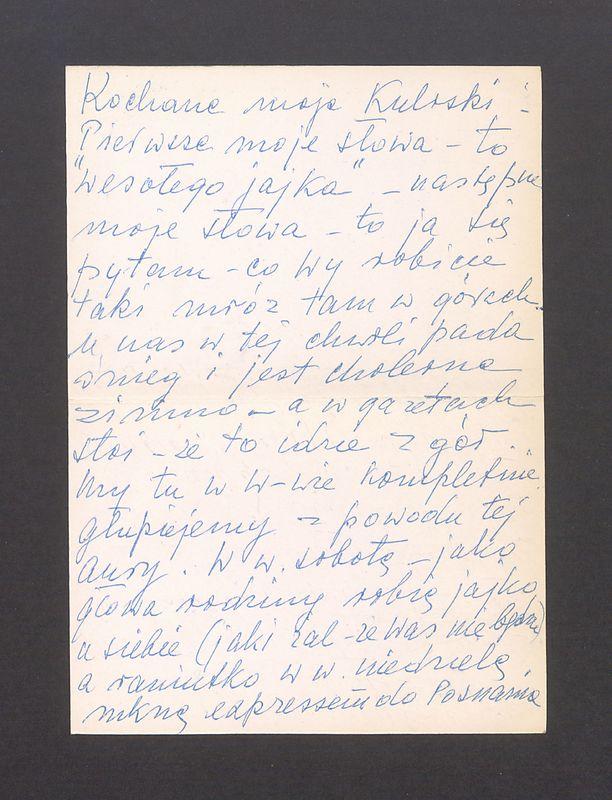 Kochane moje Kuloski! -
Pierwsze moje słowa - to
"wesołego jajka" - następne
moje słowa - to ja się
pytam - co wy robicie
taki mróz tam w górach.
u nas w tej chwili pada
śnieg i jest cholerne
zimno - a w gazetach
stoi - że to idzie z gór.
my tu w W-wie kompletnie
głupiejemy z powodu tej
aury. W w. sobotę - jako
głowa rodziny robię jajko
u siebie (jaki żal - że was nie będzie)
a raniutko w w. niedzielę
mknę expressem do Poznania